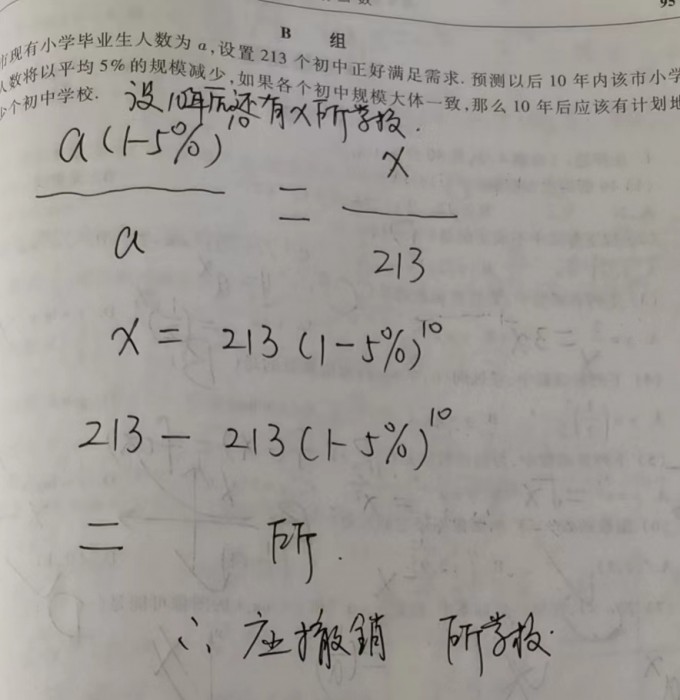 95
B 组
市现有小学毕业生人数为 a,设置 213 个初中正好满足需求. 预测以后 10 年内该市小学
人数将以平均 5% 的规模减少,如果各个初中规模大体一致,那么 10 年后应该有计划地
少个初中学校.
设10年后还有x所学校.
a(1-5%)^10 / a = x / 213
x = 213(1-5%)^10
213 - 213(1-5%)^10
= 所.
∴ 应撤销 所学校.